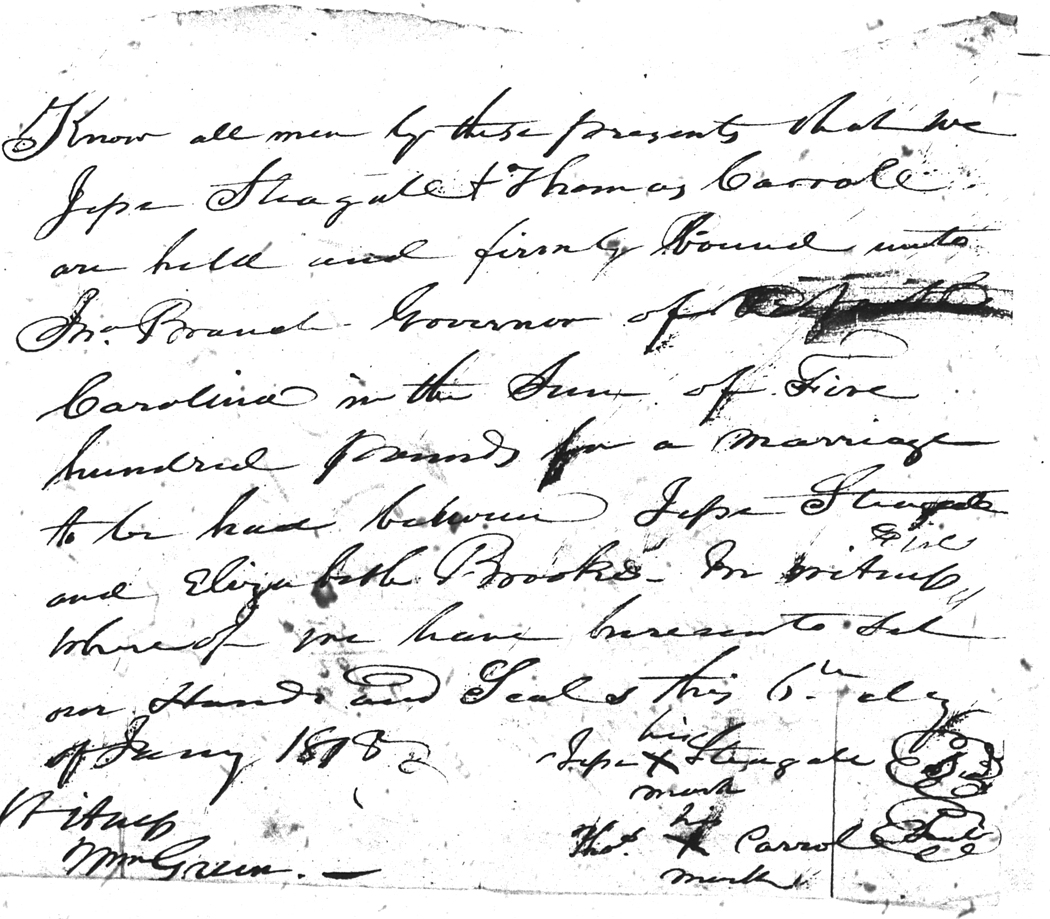 Know all men by these presents that we
Jesse Steagall & Thomas Carroll
are held and firmly bound unto
Jno. Branch Governor of
Carolina in the Sum of Five
hundred pounds for a marriage
to be had between Jesse Steagall
and Elizabeth Brooks - In witness
whereof we have hereunto set
our Hands and Seals this 6th day
of Jany 1818
his
Jesse X Steagall Seal
mark
Witness
his
Thos. X Carrol Seal
mark
Wm Green. -